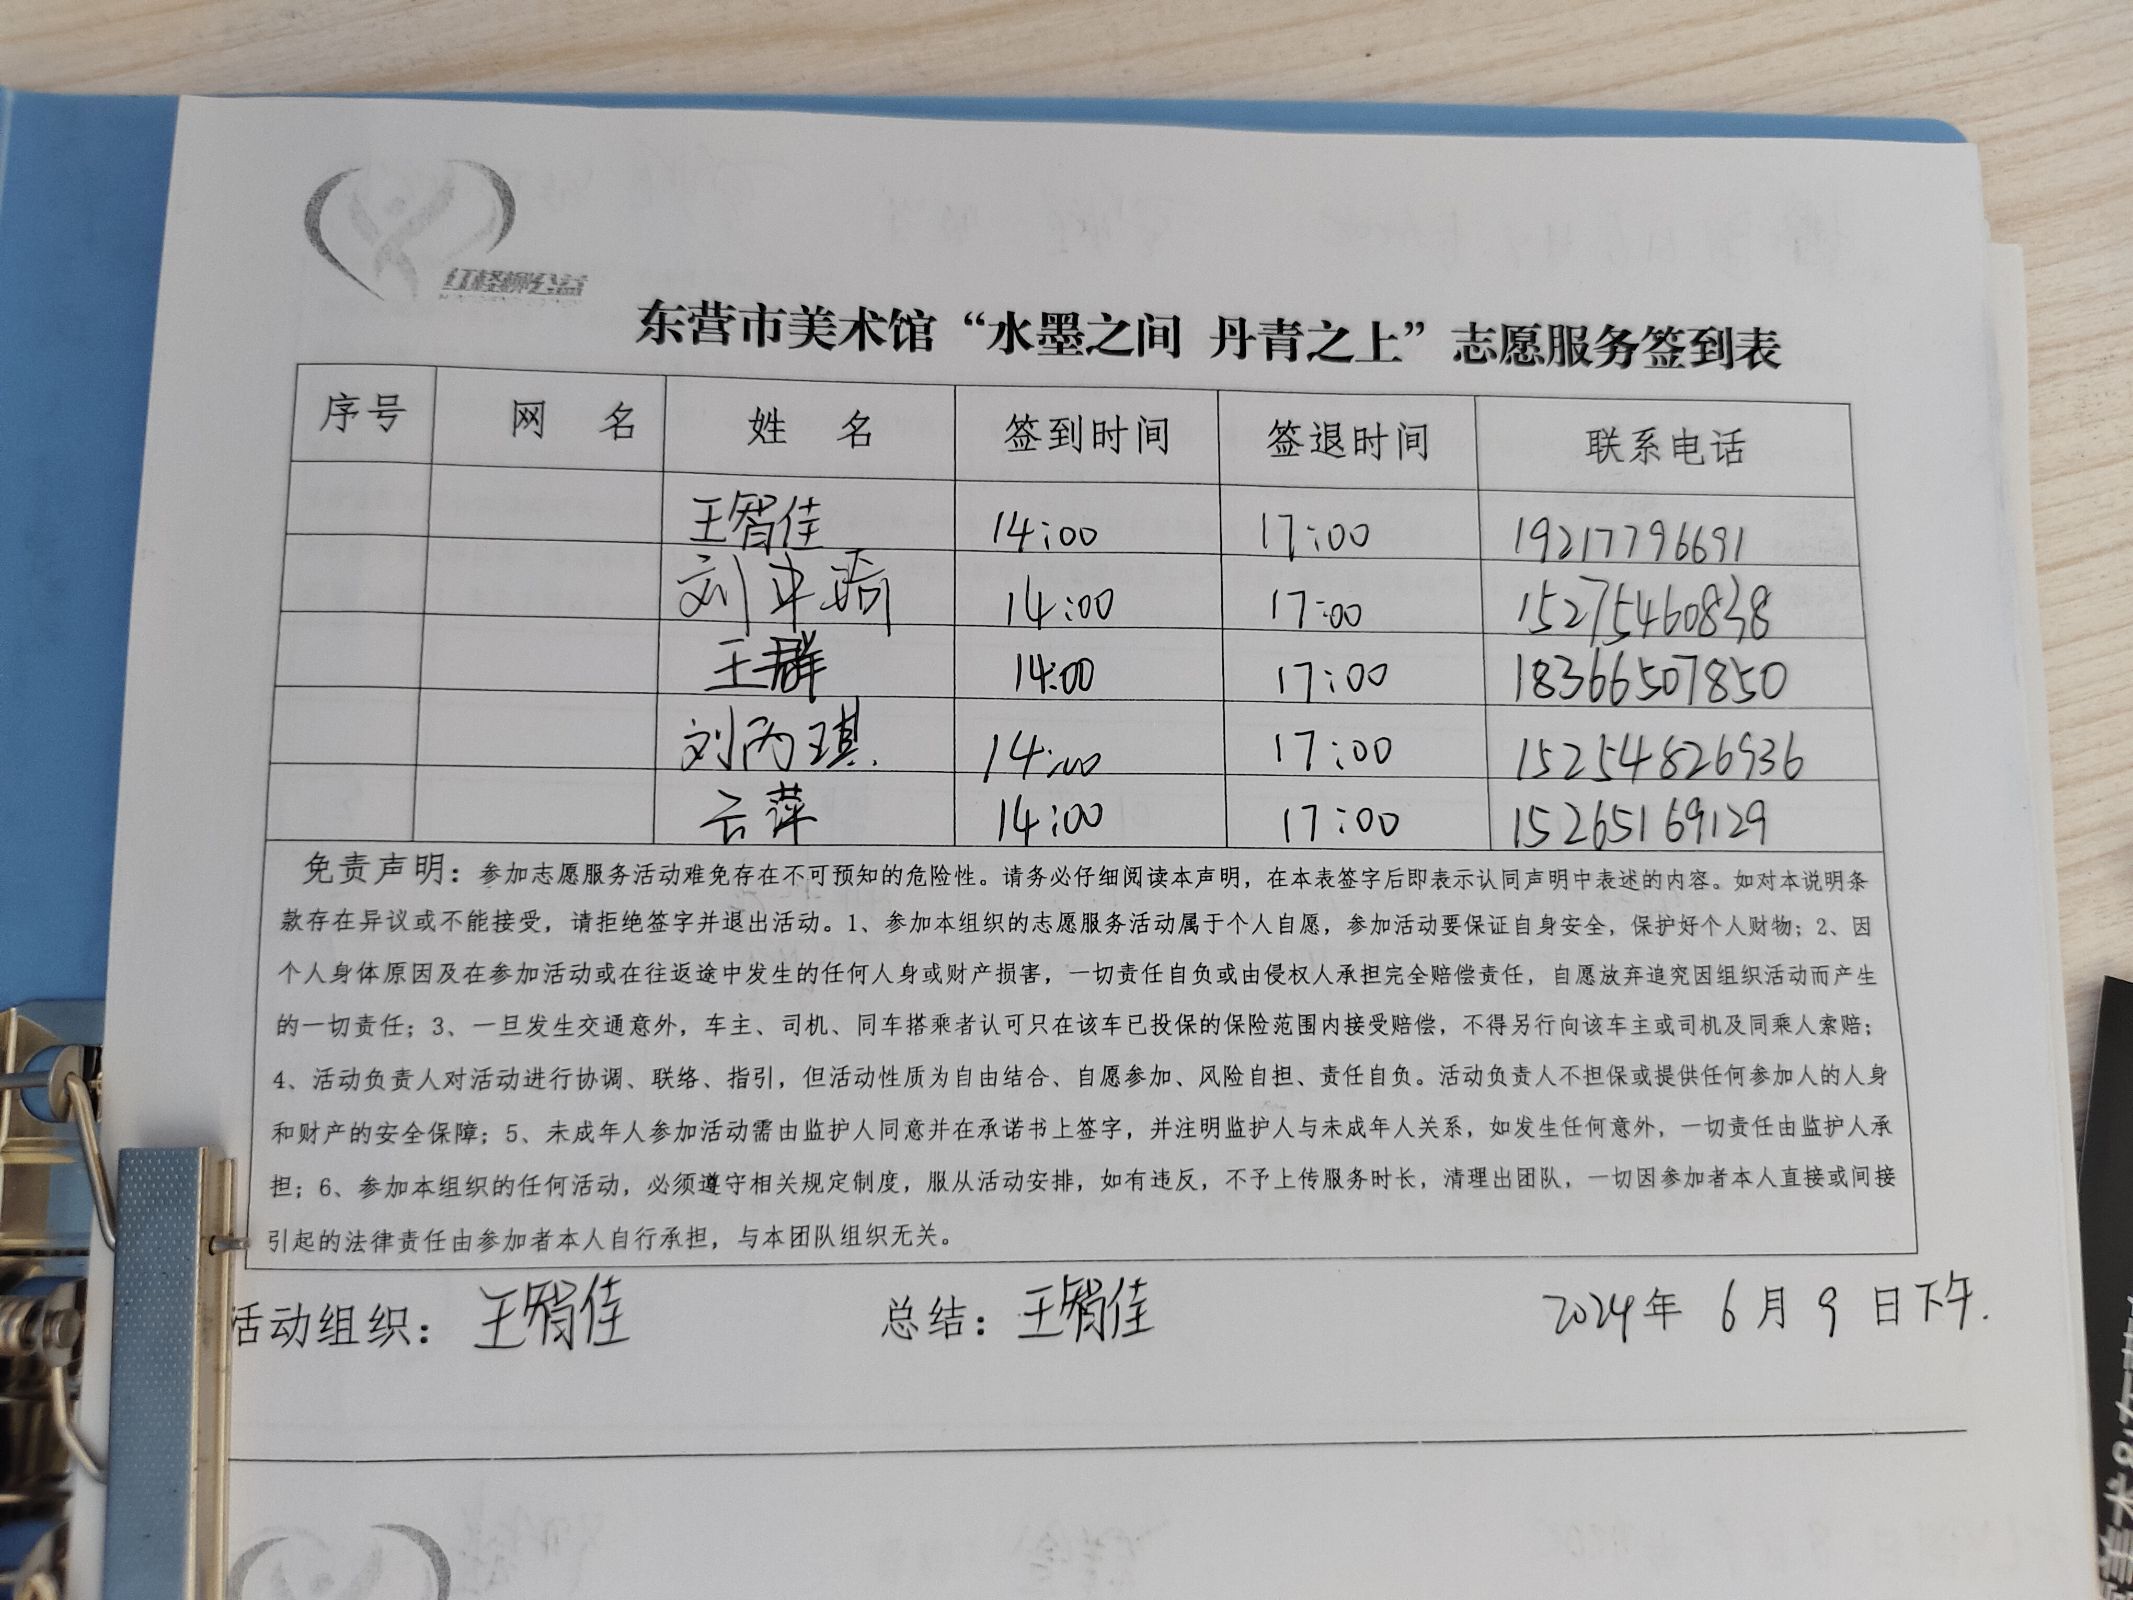 红柽柳公益
东营市美术馆“水墨之间 丹青之上”志愿服务签到表
序号 网 名 姓 名 签到时间 签退时间 联系电话
王智佳 14:00 17:00 19217796691
刘 14:00 17:00 15275460838
王群 14:00 17:00 18366507850
刘丙琪. 14:00 17:00 15254826936
云萍 14:00 17:00 15265169129
免责声明：参加志愿服务活动难免存在不可预知的危险性。请务必仔细阅读本声明，在本表签字后即表示认同声明中表述的内容。如对本说明条
款存在异议或不能接受，请拒绝签字并退出活动。1、参加本组织的志愿服务活动属于个人自愿，参加活动要保证自身安全，保护好个人财物；2、因
个人身体原因及在参加活动或在往返途中发生的任何人身或财产损害，一切责任自负或由侵权人承担完全赔偿责任，自愿放弃追究因组织活动而产生
的一切责任；3、一旦发生交通意外，车主、司机、同车搭乘者认可只在该车已投保的保险范围内接受赔偿，不得另行向该车主或司机及同乘人索赔；
4、活动负责人对活动进行协调、联络、指引，但活动性质为自由结合、自愿参加、风险自担、责任自负。活动负责人不担保或提供任何参加人的人身
和财产的安全保障；5、未成年人参加活动需由监护人同意并在承诺书上签字，并注明监护人与未成年人关系，如发生任何意外，一切责任由监护人承
担；6、参加本组织的任何活动，必须遵守相关规定制度，服从活动安排，如有违反，不予上传服务时长，清理出团队，一切因参加者本人直接或间接
引起的法律责任由参加者本人自行承担，与本团队组织无关。
活动组织：王智佳 总结：王智佳 2024年 6月 9日下午.